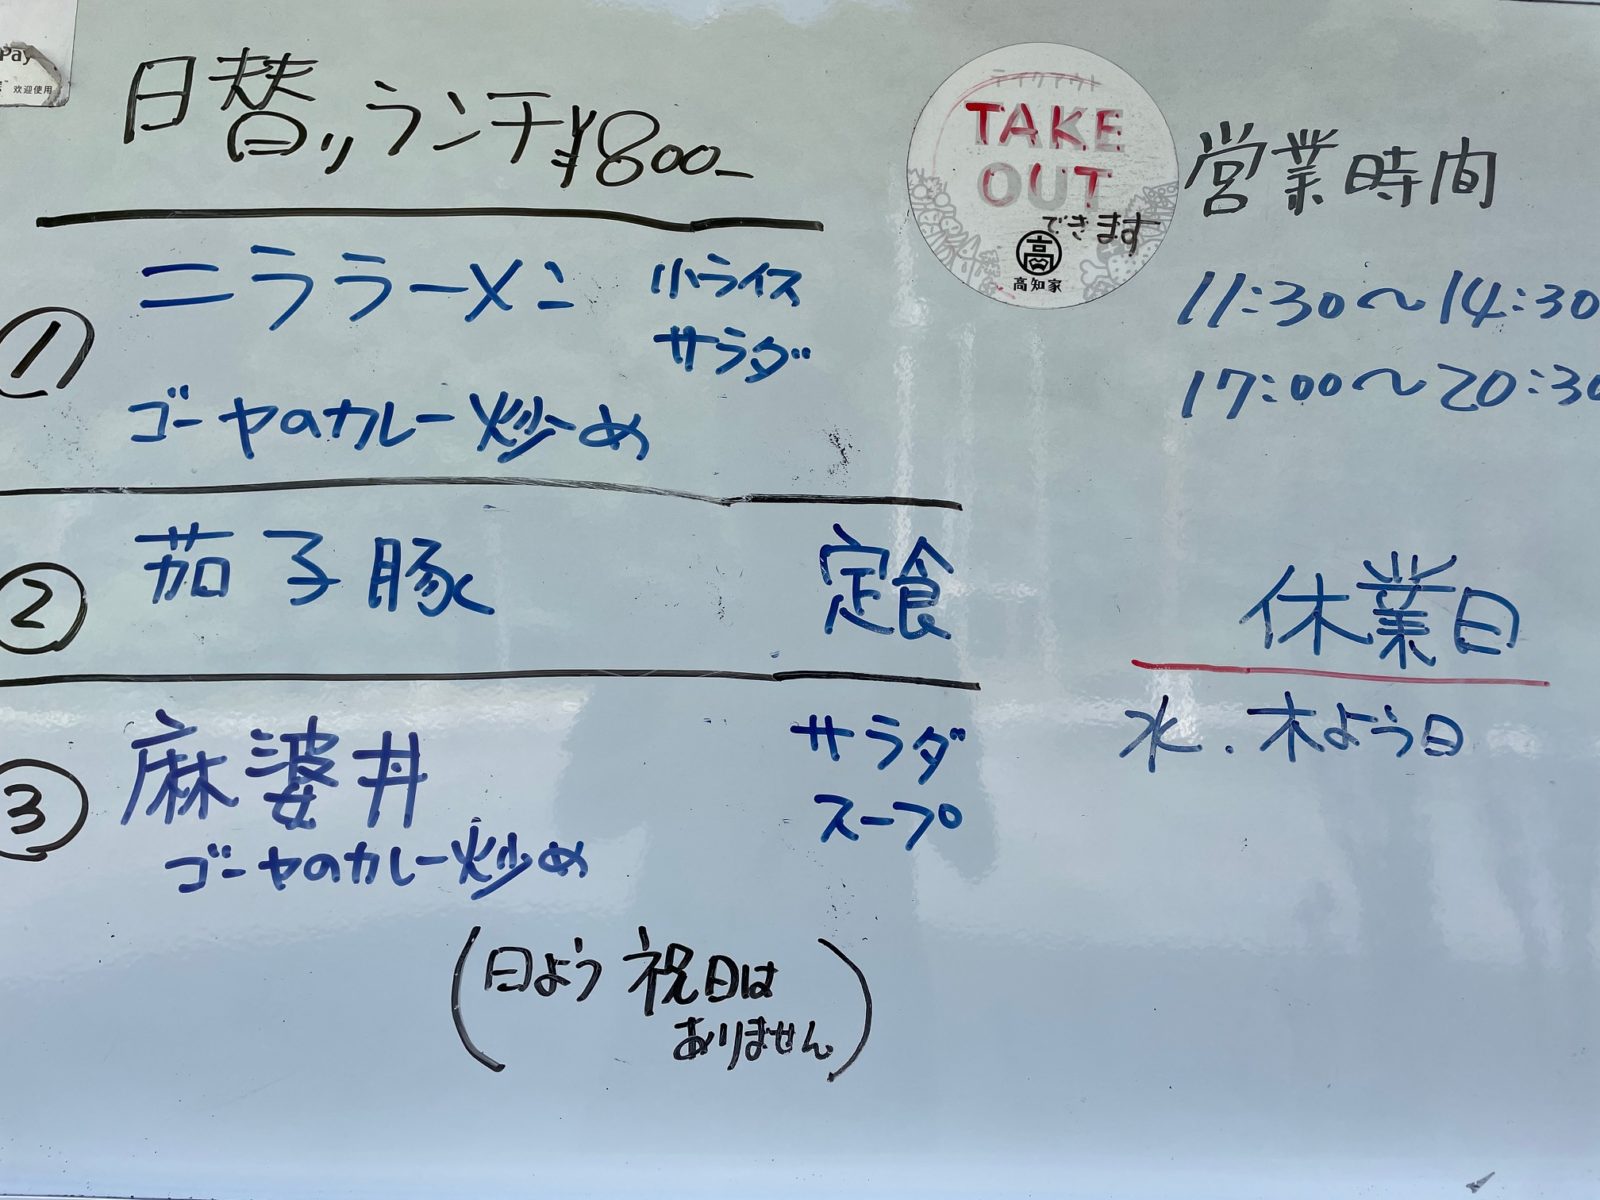 Pay
欢迎使用
日替りランチ¥800-
① ニララーメン 小ライス
サラダ
ゴーヤのカレー炒め
② 茄子豚 定食
③ 麻婆丼 サラダ
スープ
ゴーヤのカレー炒め
(日よう 祝日は
ありません)
テイクアウト
TAKE
OUT
できます
高
高知家
営業時間
11:30〜14:30
17:00〜20:30
休業日
水.木よう日